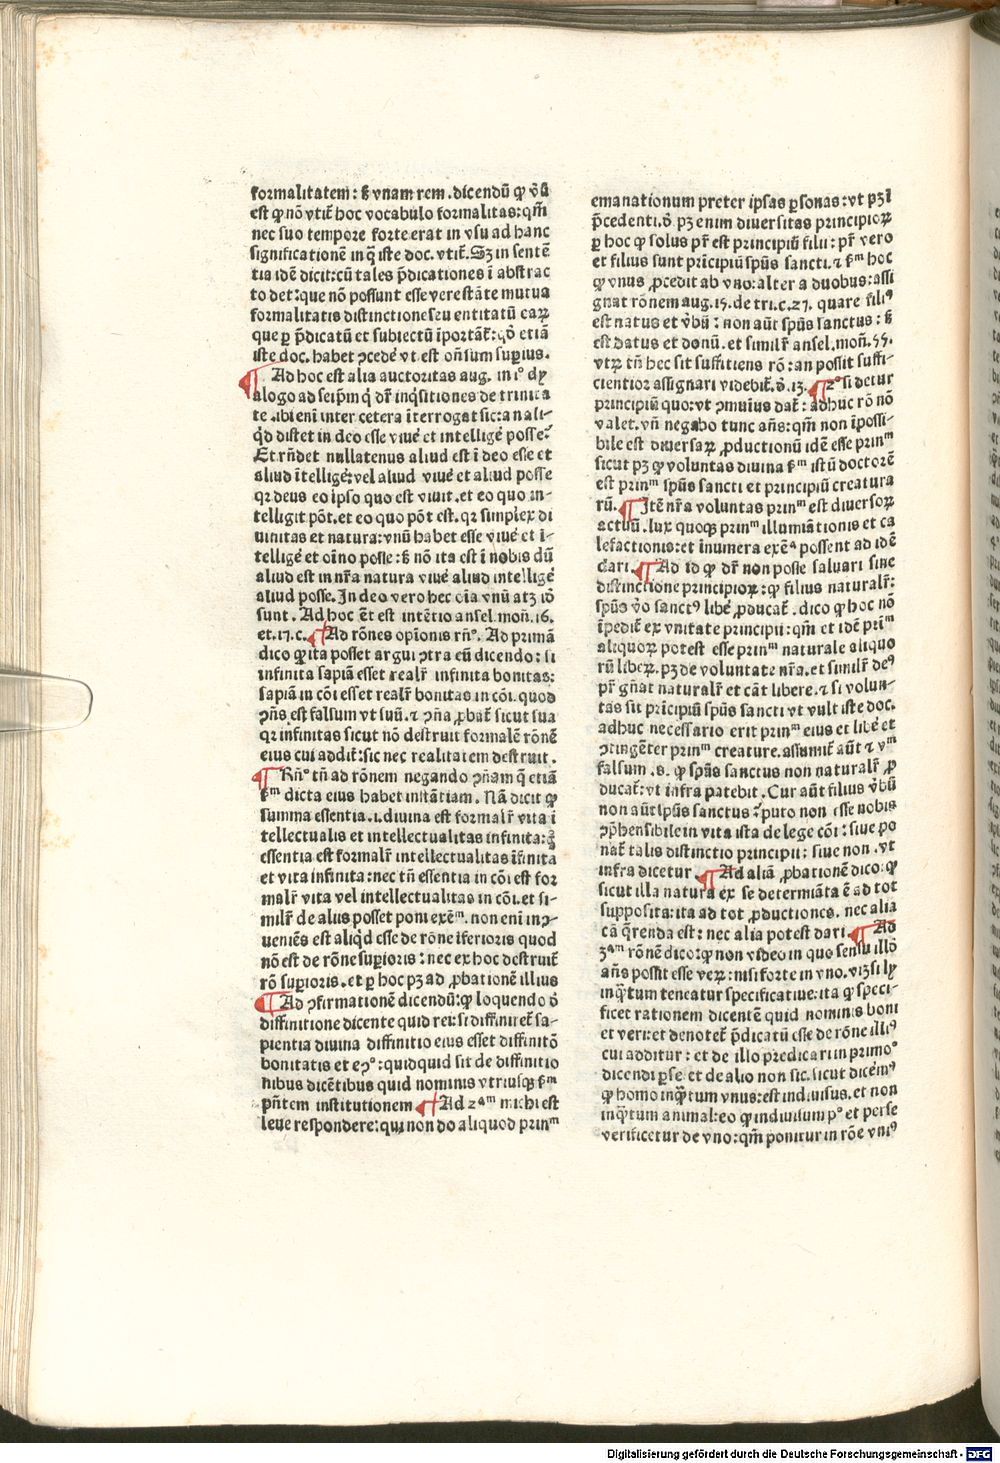 formalitatem: ꝫ vnam rem. dicendū ꝙ v̄ū
est ꝙ nō vtit̄ hoc vocabulo formalitas: qm̄
nec suo tempore forte erat in vsu ad hanc
significationē in q̄ iste doc. vtit̄. Sꝫ in sentē
tia idē dicit: cū tales p̄dicationes ī abstrac
to det: que nō possunt esse vere stāte mutua
formalitatis distinctione seu entitatū eaꝝ
que ꝑ p̄dicatū et subiectū īportāt̄: qd̄ etiā
iste doc. habet ꝯcedē vt est on̄sum suꝑius.
¶ Ad hoc est alia auctoritas aug. in iº dy
alogo ad seip̄m q̄ dr̄ inq̇sitiones de trinita
te. ibi eni inter cetera īterrogat sic: an ali-
q̇d distet in deo esse viuē et intelligē posse?
Et rn̄det nullatenus aliud est ī deo esse et
aliud ītelligē: vel aliud viuē et aliud posse
qꝛ deus eo ipso quo est viuit. et eo quo in-
telligit pōt. et eo quo pōt est. qꝛ simplex di
uinitas et natura: vnū habet esse viuē et ī-
telligē et oīno posse: ꝫ nō ita est ī nobis dū
aliud est in nr̄a natura viuē aliud intelligē
aliud posse. In deo vero hec oīa vnū atꝫ id̄
sunt. Ad hoc ēt est intētio ansel. moń. 16.
et. 17. c. ¶ Ad rōnes opīonis rn̄º. Ad primā
dico ꝙ ita posset argui ꝯtra eū dicendo: si
infinita sapīa esset realr̄ infinita bonitas:
sapīa in cōi esset realr̄ bonitas in cōi. quod
ꝯn̄s est falsum vt suū. ⁊ ꝯn̄a ꝓbat̄ sicut sua
qꝛ infinitas sicut nō destruit formalē rōnē
eius cui addit̄: sic nec realitatem destruit.
¶ Rn̄º tn̄ ad rōnem negando ꝯn̄am q̄ etiā
ẜm dicta eius habet instātiam. Nā dicit ꝙ
summa essentia. i. diuina est formalr̄ vita ī
tellectualis et intellectualitas infinita: ꝫ
essentia est formalr̄ intellectualitas īfinita
et vita infinita: nec tn̄ essentia in cōi est for
malr̄ vita vel intellectualitas in cōi. et si-
milr̄ de aliis posset poni exēm. non eni inꝯ-
ueniēs est aliq̇d esse de rōne īferioris quod
nō est de rōne suꝑioris: nec ex hoc destruit̄
rō suꝑioris. et ꝑ hoc pꝫ ad ꝓbationē illius
¶ Ad ꝯfirmationē dicendū: ꝙ loquendo d̄
diffinitione dicente quid rei: si diffiniret̄ sa-
pientia diuina diffinitio eius esset diffinitō
bonitatis et eꝯº: quidquid sit de diffinitio
nibus dicētibus quid nominis vtriusqꝫ ẜm
pn̄tem institutionem ¶ Ad 2am michi est
leue respondere: qui non do aliquod prinm
emanationum preter ipsas ꝑsonas: vt pꝫ ī
p̄cedenti. d̄. pꝫ enim diuersitas principioꝝ
ꝑ hoc ꝙ solus pr̄ est principiū filii: pr̄ vero
et filius sunt prīcipiū spūs sancti. ⁊ ẜm hoc
ꝙ vnus ꝓcedit ab vno: alter a duobus: assi
gnat rōnem aug. 15. de tri. c. 27. quare filiꝰ
est natus et v̄bū: non aūt spūs sanctus: ꝫ
est datus et donū. et similr̄ ansel. moń. 55.
vtꝝ tn̄ hec sit suffitiens rō: an possit suffi-
cientior assignari videbit̄. d̄. 13. ¶ 2º si detur
principiū quo: vt ꝯmuiūs dat̄: adhuc rō nō
valet. vn̄ negabo tunc an̄s: qm̄ non īpossi-
bile est diuersaꝝ ꝓductionū idē esse prinm
sicut pꝫ ꝙ voluntas diuina ẜm istū doctorē
est prinm spūs sancti et principiū creatura
rū. ¶ Itē nr̄a voluntas prinm est diuersoꝝ
actuū. lux quoqꝫ prinm illumīationis et ca
lefactionis: et īnumera exēa possent ad idē
dari. ¶ Ad id ꝙ dr̄ non posse saluari sine
distinctione principioꝝ: ꝙ filius naturalr̄:
spūs v̄o sanctꝰ libē ꝓducat̄. dico ꝙ hoc nō
īpedit̄ ex vnitate principii: qm̄ et idē prim
aliquoꝝ potest esse prinm naturale aliquo
rū liberꝝ. pꝫ de voluntate nr̄a. et similr̄ deꝰ
pr̄ gn̄at naturalr̄ et cāt libere. ⁊ si volun-
tas sit prīcipiū spūs sancti vt vult iste doc.
adhuc necessario erit prinm eius et libē et
ꝯtingēter prinm creature. assumit̄ aūt ⁊ vm
falsum. s. ꝙ spūs sanctus non naturalr̄ ꝓ
ducat̄: vt infra patebit. Cur aūt filius v̄bū
non aūt spūs sanctus? puto non esse nobis
ꝯp̄hensibile in vita ista de lege cōi: siue po
nat̄ talis distinctio principii: siue non. vt
infra dicetur ¶ Ad aliā ꝓbationē dico: ꝙ
sicut illa natura ex se determīata ē ad tot
supposita: ita ad tot ꝓductiones. nec alia
cā q̄renda est: nec alia potest dari. ¶ Ad
3am rōnē dico: ꝙ non video in quo sensu illō
an̄s possit esse verꝝ: nisi forte in vno. vꝫ si lꝫ
inq̄tum teneatur specificatiue: ita ꝙ speci-
ficet rationem dicentē quid nominis boni
et veri: et denotet̄ p̄dicatū esse de rōne illiꝰ
cui additur: et de illo predicari in primo
dicendi ꝑ se et de alio non sic. sicut dicēm
ꝙ homo inq̄tum vnus: est indiuisus. et non
inq̄tum animal: eo ꝙ indiuiuum pº et perse
verificetur de vno: qm̄ ponitur in rōe vniꝰ
Digitalisierung gefördert durch die Deutsche Forschungsgemeinschaft - DFG